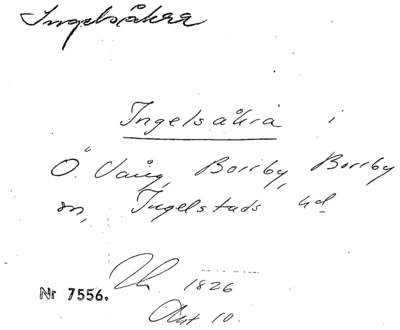 Ingelsåkra
Ingelsåkra i
Ö. Vång, Borrby, Borrby
sn, Ingelstads hd
Nr 7556. 1826
Akt 10.